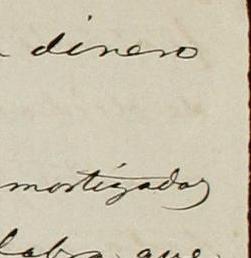 dinero
mortizadas
labra que